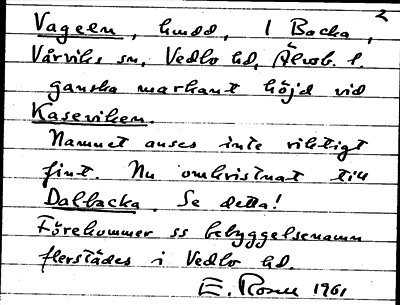 2
Vageln, hmdd, 1 Backa,
Vårviks sn, Vedbo hd, Älvsb. l.
ganska markant höjd vid
Kaseviken.
Namnet anses inte riktigt
fint. Nu omkristnat till
Dalbacka. Se detta!
Förekommer ss bebyggelsenamn
flerstädes i Vedbo hd.
E. 1961